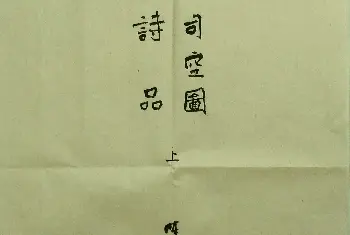 司空圖
詩品
上